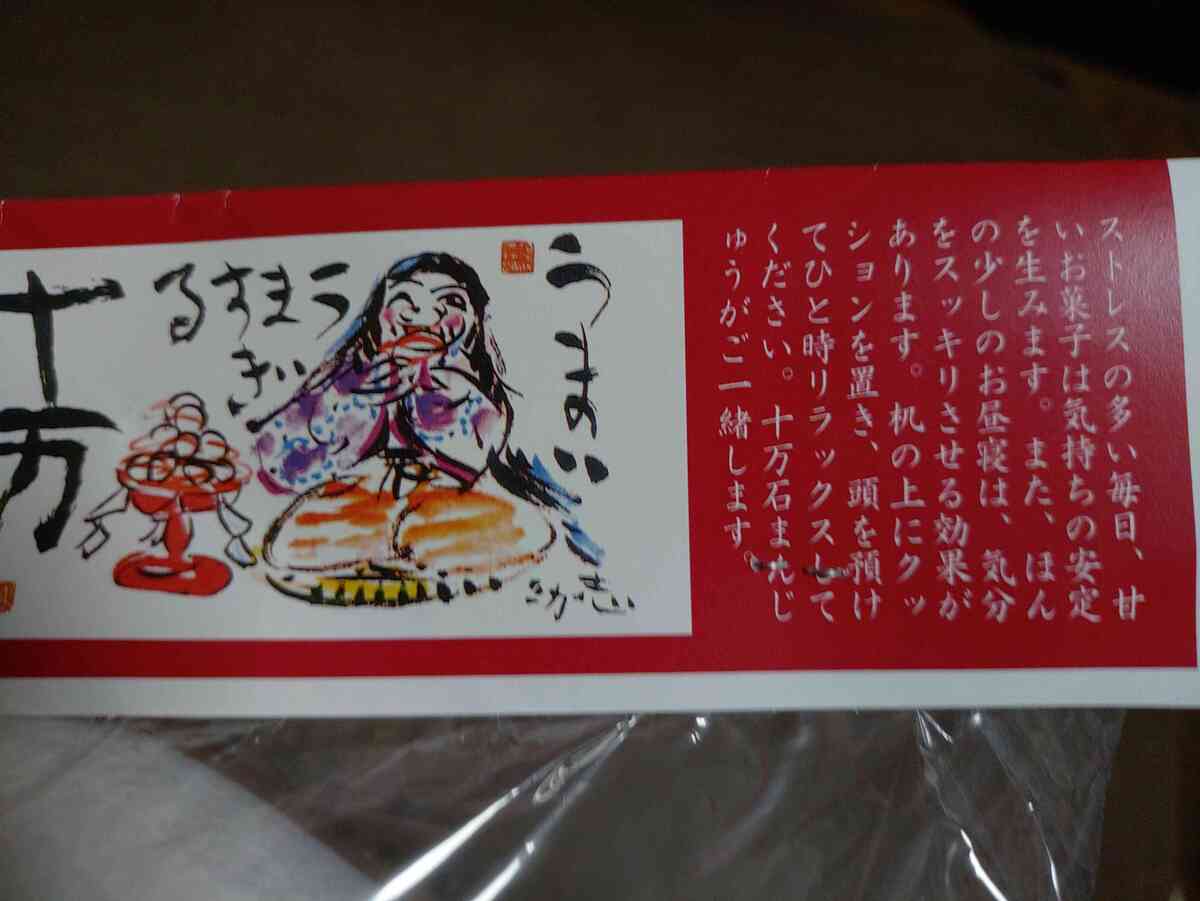 ストレスの多い毎日、甘
いお菓子は気持ちの安定
を生みます。また、ほん
の少しのお昼寝は、気分
をスッキリさせる効果が
あります。机の上にクッ
ションを置き、頭を預け
てひと時リラックスして
ください。十万石まんじ
ゅうがご一緒します。
うまい
うますぎ
る
志功
十万